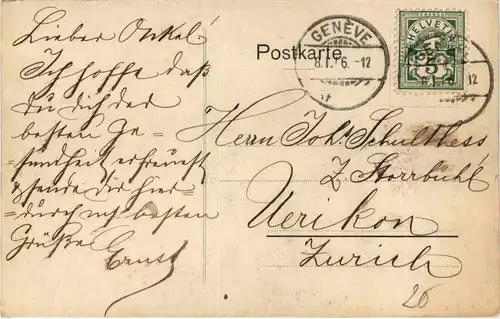 Lieber Onkel!
Ich hoffe daß
Du dich der
besten Ge-
sundheit erfreust
& sende Dir hier-
durch m/ besten
Grüße
Ernst
Postkarte.
GENÈVE
8.I. 6.-12
HELVETIA
5
12
Herrn Joh. Schulthess
z. Storrbühl
Uerikon
Zurich
26